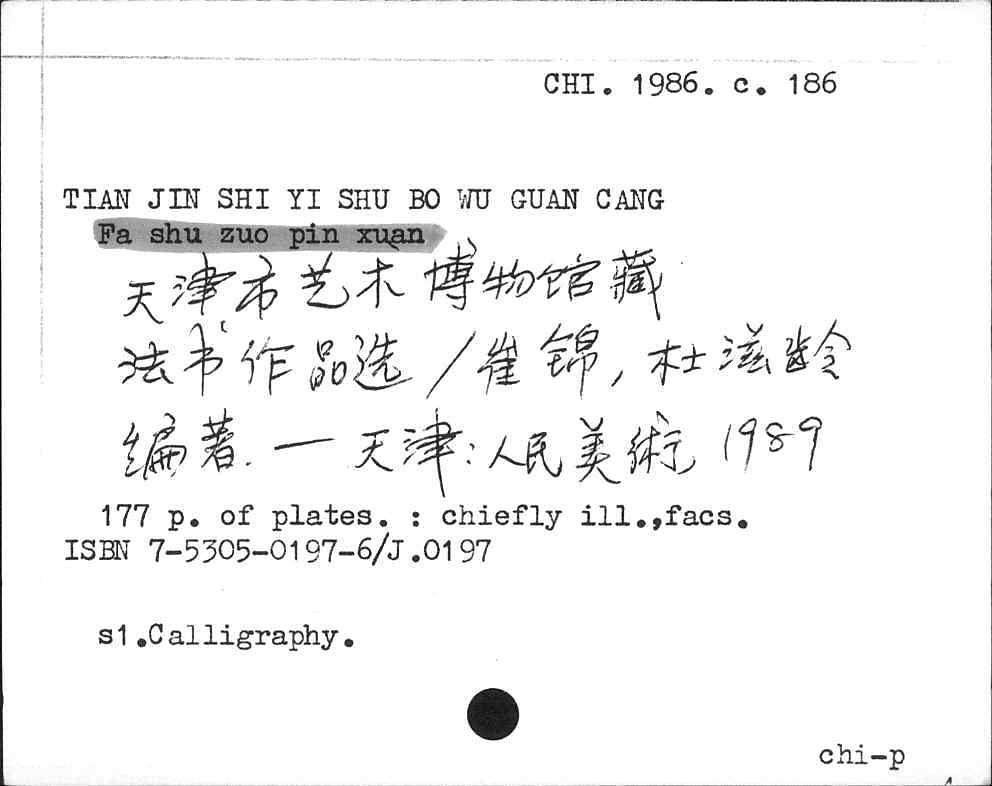 CHI. 1986. c. 186
TIAN JIN SHI YI SHU BO WU GUAN CANG
Fa shu zuo pin xuan
天津市艺术博物馆藏
法书作品选 / 崔锦, 杜滋龄
编著. — 天津: 人民美術 1989
177 p. of plates. : chiefly ill.,facs.
ISBN 7-5305-0197-6/J.0197
s1.Calligraphy.
chi-p